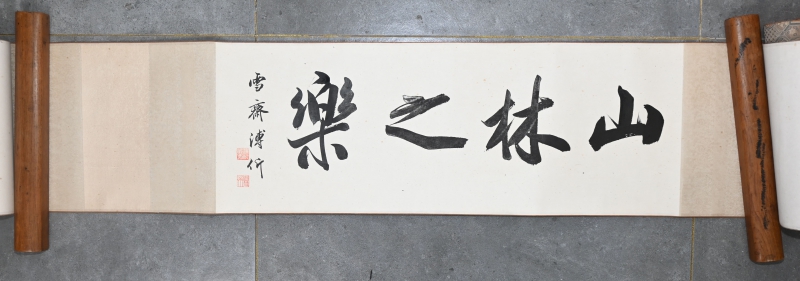 山林之樂
雪齋溥伒